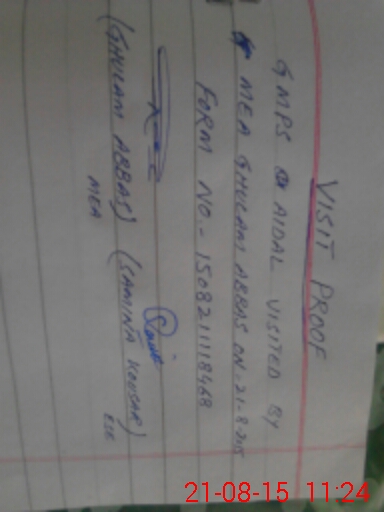 VISIT PROOF
GMPS AIDAL VISITED BY
MEA GHULAM ABBAS ON-21-8-2015
FORM NO.- 150821118468
(GHULAM ABBAS) (SAMINA KOUSAR)
MEA ESE
21-08-15 11:24